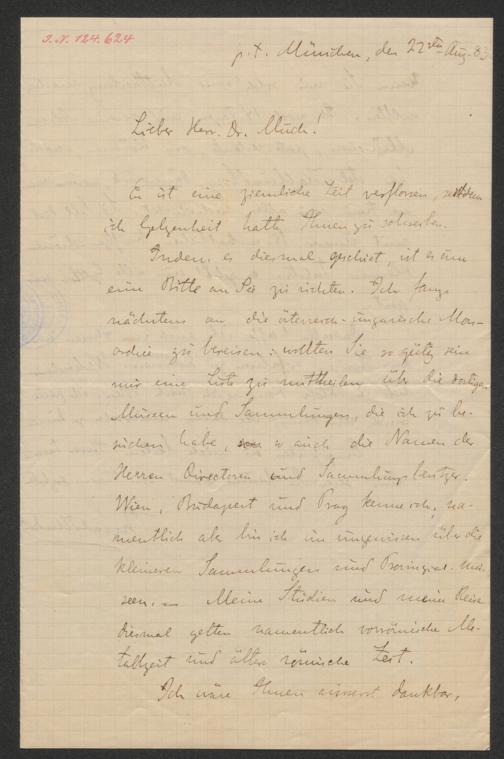 I.N. 124.624
p.t. München, den 22ten Aug. 83
Lieber Herr Dr. Much!
Es ist eine ziemliche Zeit verflossen, seitdem
ich Gelgenheit hatte Ihnen zu schreiben.
Indem es diesmal geschiet, ist es um
eine Bitte an Sie zu richten. Ich fange
nächstens an, die österreich-ungarische Mon-
archie zu bereisen; wollten Sie so gütig sein
mir eine Liste zu mittheilen über die dortigen
Museen und Sammlungen, die ich zu be-
suchen habe, so auch die Namen der
Herren Directoren und Sammlungsbesitzer.
Wien, Budapest und Prag kenne ich, na-
mentlich aber bin ich im ungewissen über die
kleineren Sammlungen und Provinzial-Mu-
seen. — Meine Studien und meine Reise
diesmal gelten namentlich vorrömische Me-
tallzeit und ältere römische Zeit.
Ich wäre Ihnen äusserst dankbar,